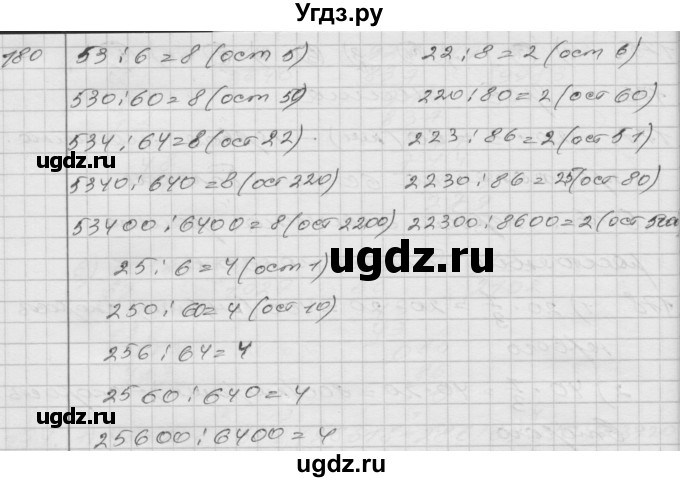 Угдз.ру
180
53 : 6 = 8 (ост 5)
530 : 60 = 8 (ост 50)
534 : 64 = 8 (ост 22)
5340 : 640 = 8 (ост 220)
53400 : 6400 = 8 (ост 2200)
22 : 8 = 2 (ост 6)
220 : 80 = 2 (ост 60)
223 : 86 = 2 (ост 51)
2230 : 86 = 25 (ост 80)
22300 : 8600 = 2 (ост
25 : 6 = 4 (ост 1)
250 : 60 = 4 (ост 10)
256 : 64 = 4
2560 : 640 = 4
25600 : 6400 = 4
ugdz.ru
ugdz.ru
ugdz.ru
ugdz.ru
ugdz.ru
ugdz.ru
ugdz.ru